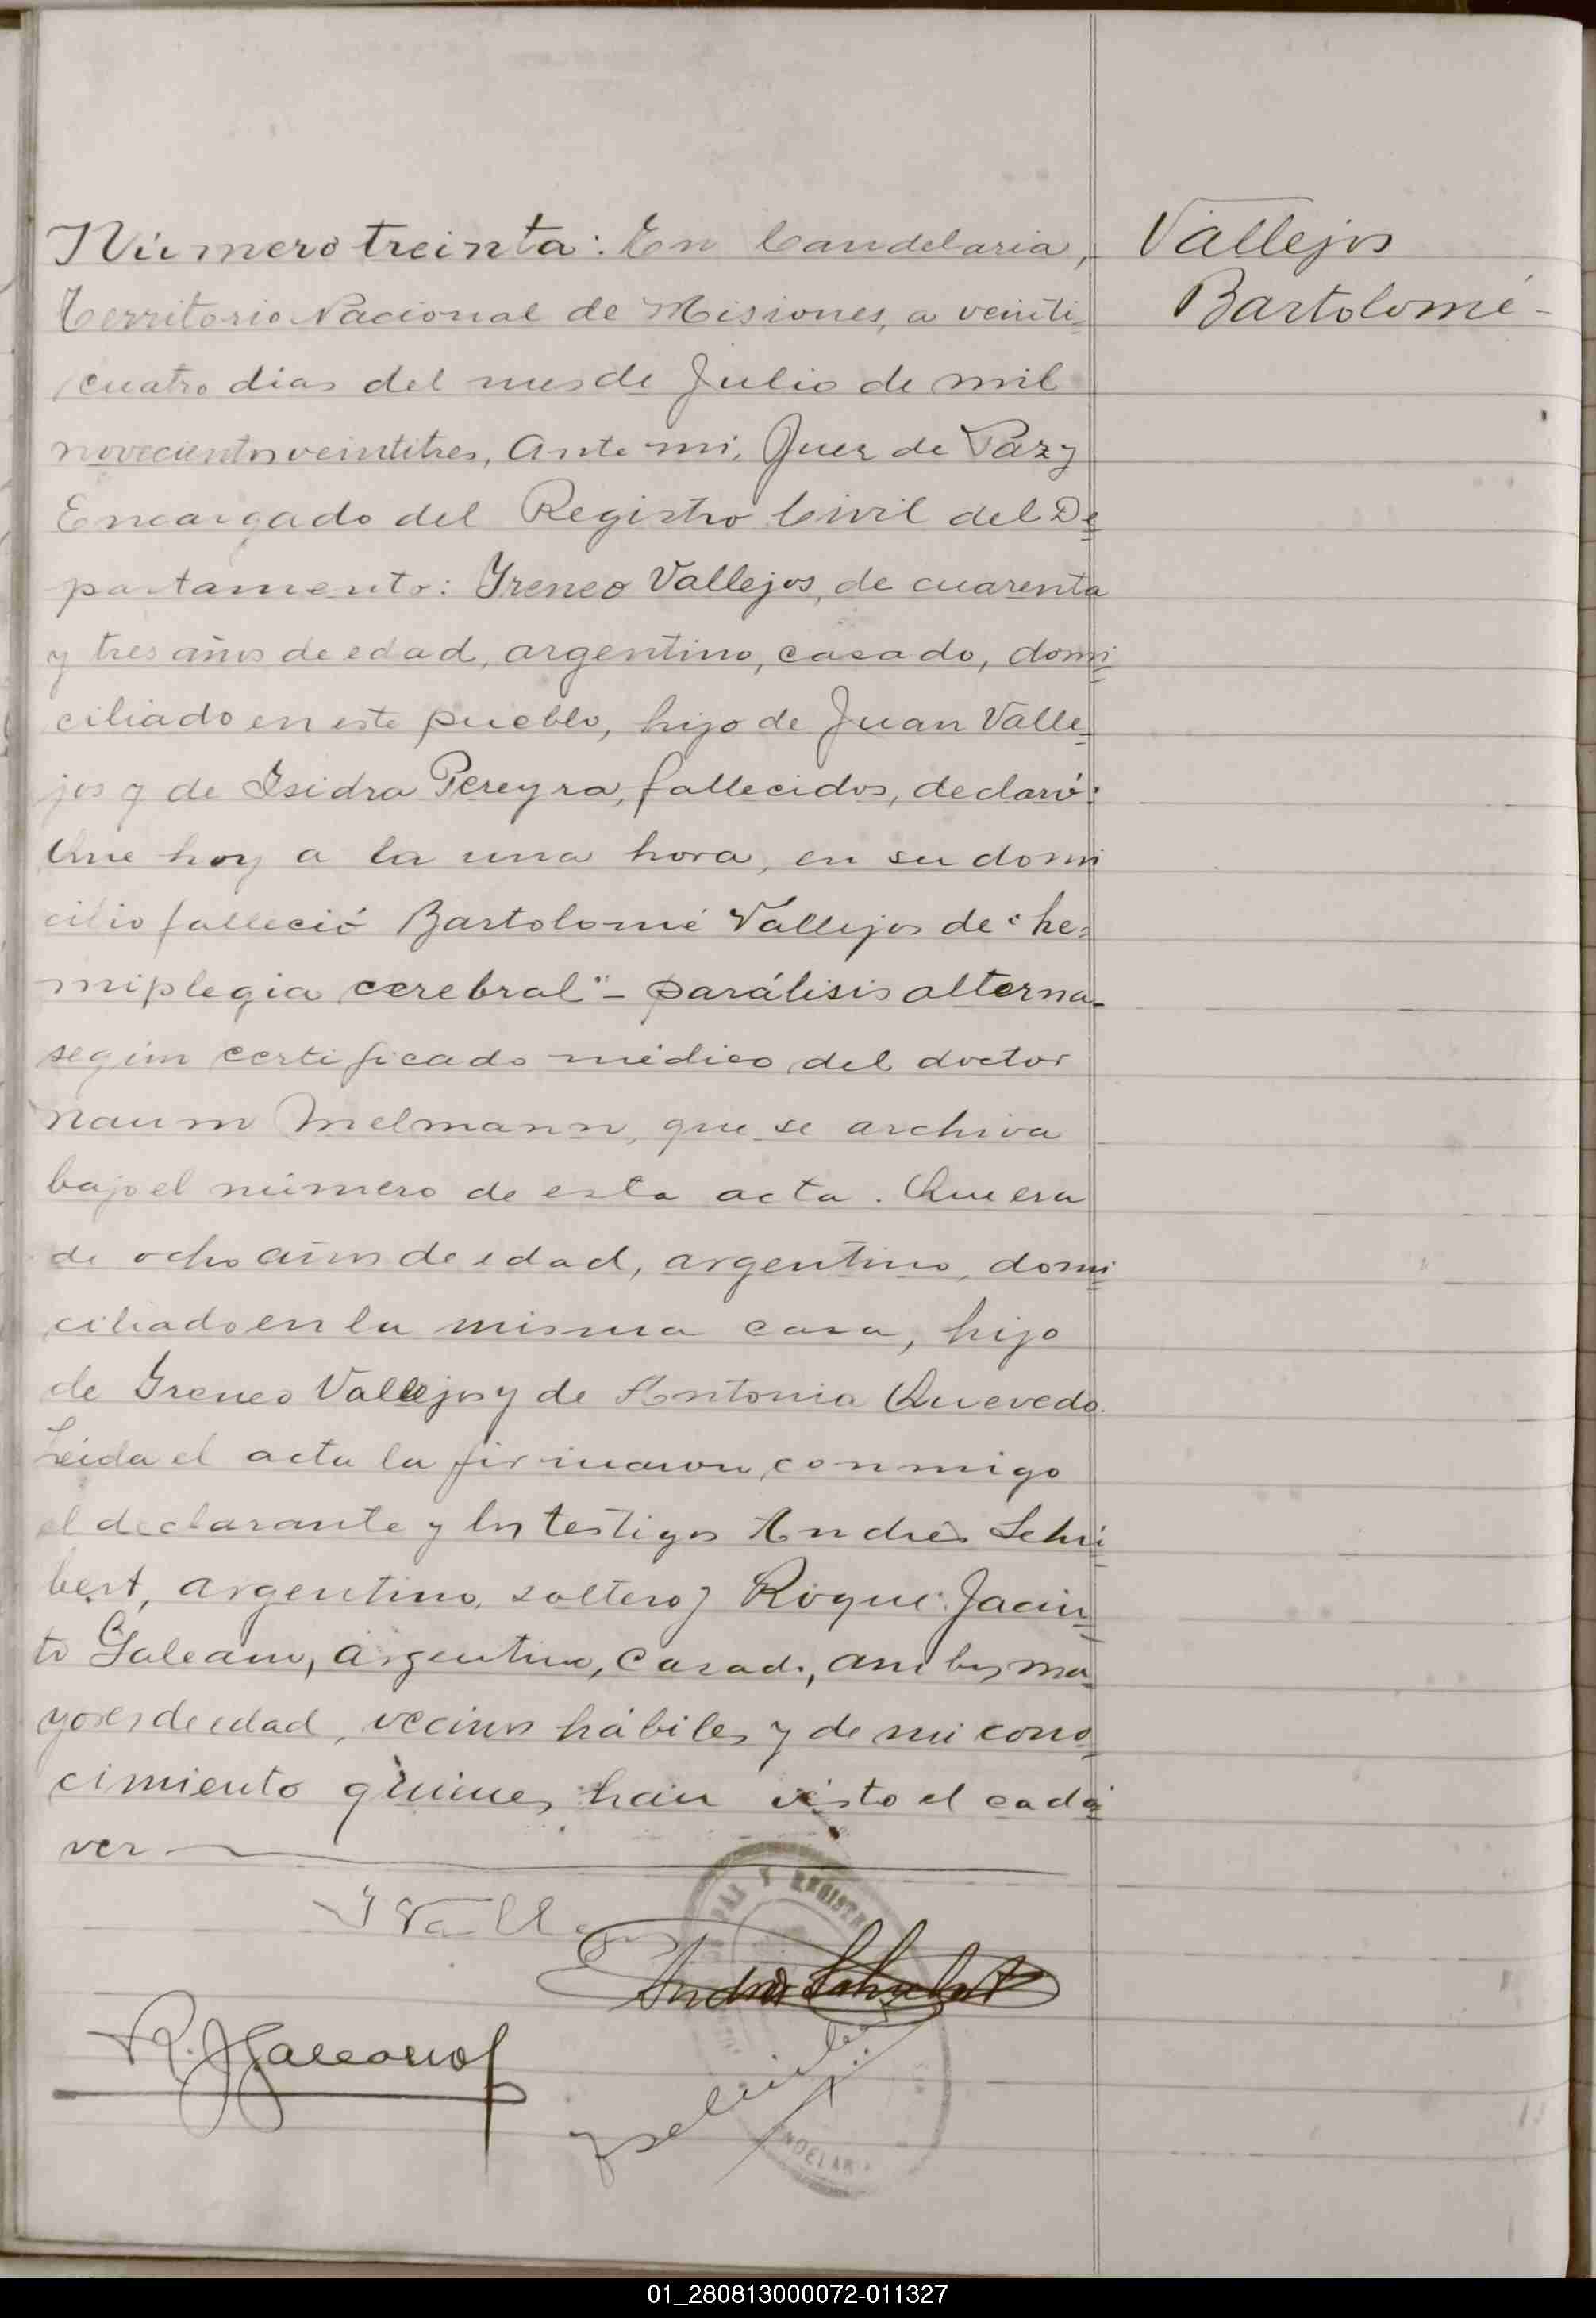 Número treinta: En Candelaria,
Vallejos
Bartolomé -
Territorio Nacional de Misiones, a veinti=
cuatro dias del mes de Julio de mil
novecientos veintitres, Ante mi, Juez de Paz y
Encargado del Registro Civil del De=
partamento: Yreneo Vallejos, de cuarenta
y tres años de edad, argentino, casado, domi=
ciliado en este pueblo, hijo de Juan Valle=
jos y de Isidra Pereyra, fallecidos, declaró:
Que hoy a la una hora, en su domi
cilio falleció Bartolomé Vallejos de "he=
miplegia cerebral" - parálisis alterna-
según certificado médico del doctor
Naum Melmann, que se archiva
bajo el número de esta acta. Que era
de ocho años de edad, argentino, domi=
ciliado en la misma casa, hijo
de Yreneo Vallejos y de Antonia Quevedo.
Leida el acta la firmaron conmigo
el declarante y los testigos Andrés Schú=
bert, argentino, soltero y Roque Jacin=
to Galeano, argentino, casado, ambos ma=
yores de edad, vecinos hábiles y de mi cono=
cimiento quienes han visto el cadá=
ver
Y Vallejos
PAZ Y REGISTR
Andrés Schubert
R. J Galeano
NDELAR
01_280813000072-011327